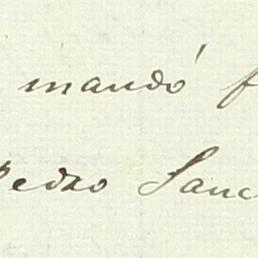 mandó f
Pedro Sanc